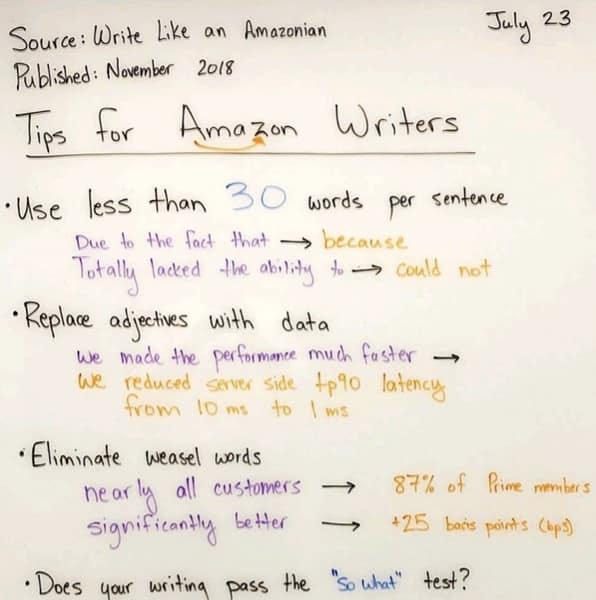 Source: Write Like an Amazonian
July 23
Published: November 2018
Tips for Amazon Writers
• Use less than 30 words per sentence
Due to the fact that → because
Totally lacked the ability to → could not
• Replace adjectives with data
We made the performance much faster →
We reduced server side tp90 latency
from 10 ms to 1 ms
• Eliminate weasel words
nearly all customers → 87% of Prime members
significantly better → +25 basis points (bps)
• Does your writing pass the "So what" test?